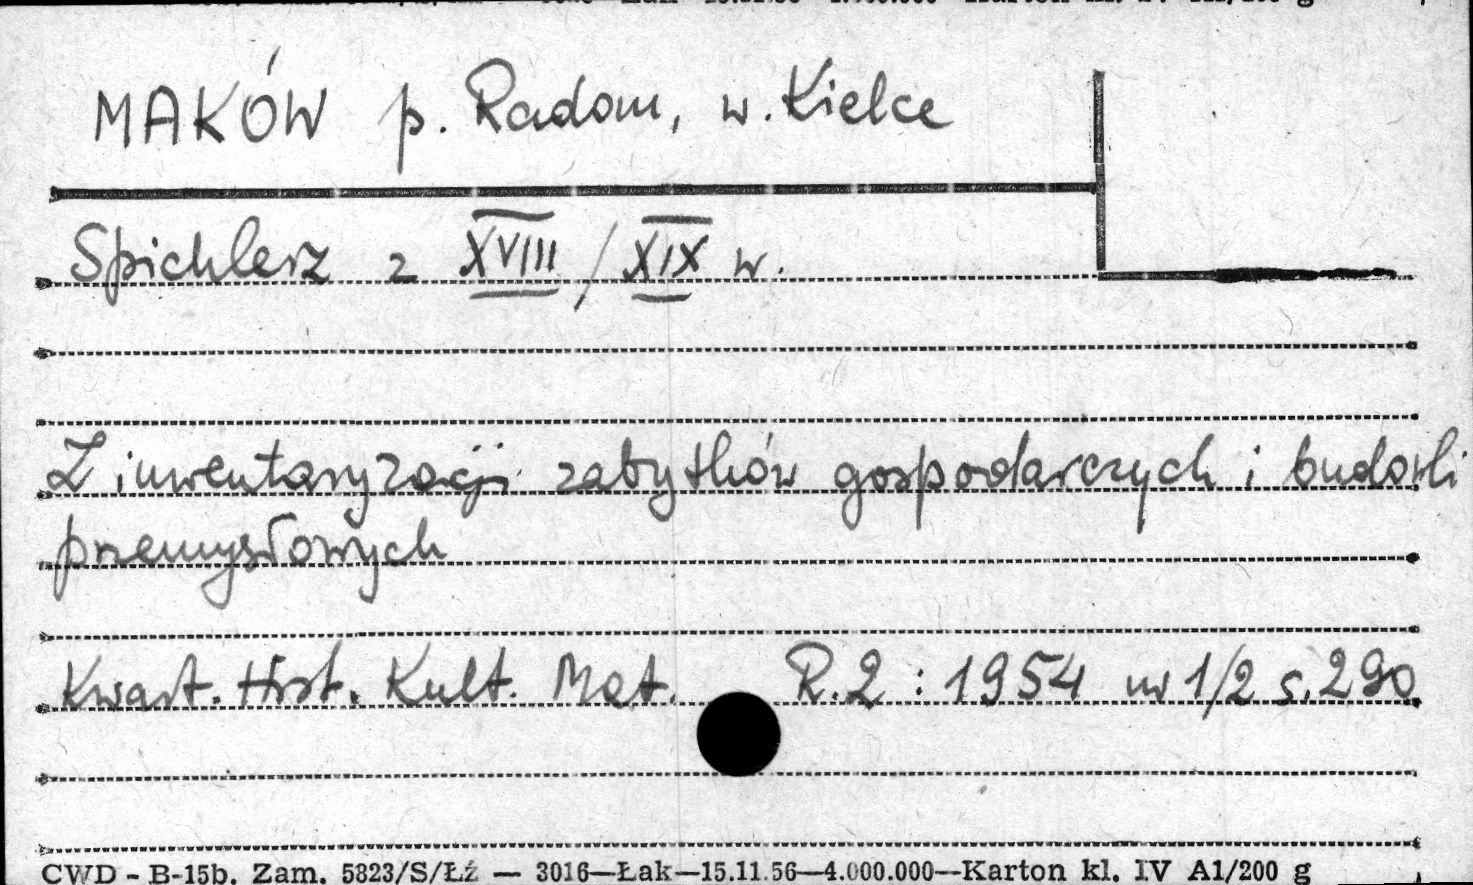 MAKÓW p. Radom, w. Kielce
Spichlerz z XVIII/XIX w.
Z inwentaryzacji zabytków gospodarczych i budowli
przemysłowych
Kwart. Hist. Kult. Mat. R.2 : 1954 nr 1/2 s.290
CWD - B-15b. Zam. 5823/S/Łź — 3016—Łak—15.11.56—4.000.000—Karton kl. IV A1/200 g